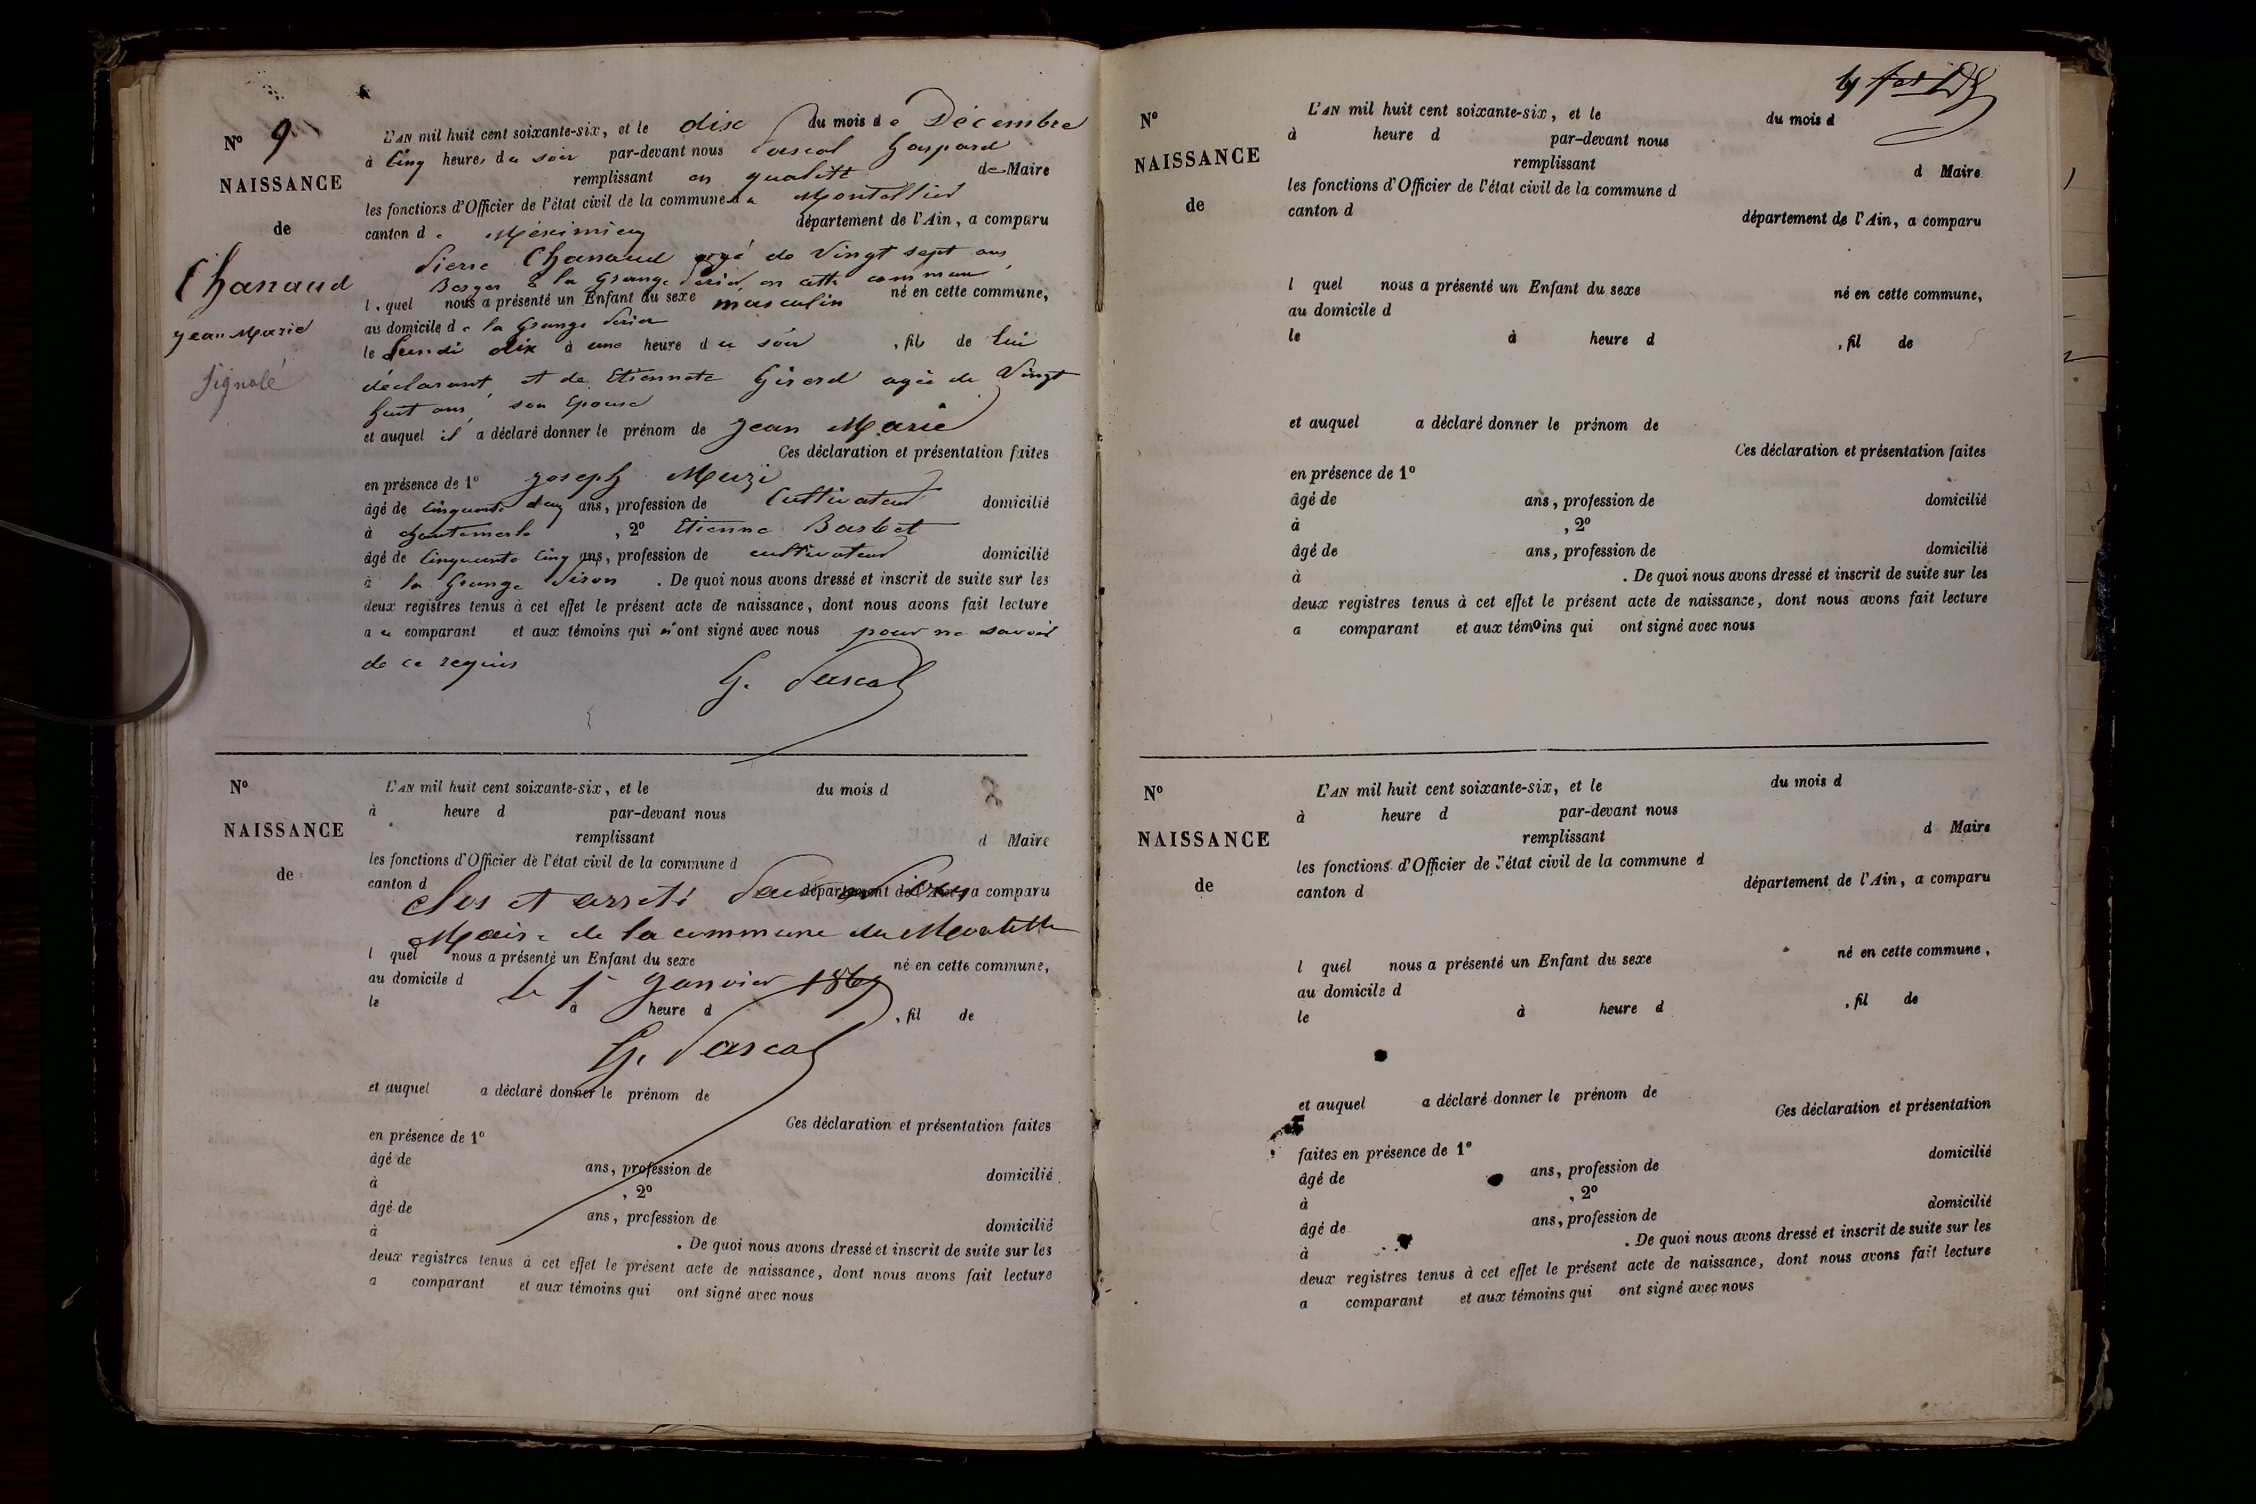 Nº 9
NAISSANCE
de
Chanaud
Jean Marie
Signalé
L'AN mil huit cent soixante-six, et le dix du mois de Décembre
à Cinq heures du soir par-devant nous Pascal Gaspard
remplissant en qualité de Maire
les fonctions d'Officier de l'état civil de la commune de Montellier
canton de Meximieux département de l'Ain, a comparu
Pierre Chanaud agé de Vingt sept ans
Berger à la Grange en cette commune,
lequel nous a présenté un Enfant du sexe masculin né en cette commune,
au domicile de la Grange
le Lundi dix à une heure du soir, fils de lui
déclarant et de Etiennete Girerd agée de Vingt
huit ans, son épouse
et auquel il a déclaré donner le prénom de Jean Marie
Ces déclaration et présentation faites
en présence de 1º Joseph
âgé de Cinquante deux ans, profession de Cultivateur domicilié
à chantemerle, 2º Etienne Barbet
âgé de Cinquante Cinq ans, profession de cultivateur domicilié
à la Grange. De quoi nous avons dressé et inscrit de suite sur les
deux registres tenus à cet effet le présent acte de naissance, dont nous avons fait lecture
au comparant et aux témoins qui n'ont signé avec nous pour ne savoir
de ce requis
G. Pascal
Nº
NAISSANCE
de
L'AN mil huit cent soixante-six, et le du mois d
à heure d par-devant nous
remplissant d Maire
les fonctions d'Officier de l'état civil de la commune d
canton d département de l'Ain, a comparu
Clos et arrêté par nous
Maire de la commune du Montellier
l quel nous a présenté un Enfant du sexe né en cette commune,
au domicile d
le 1er Janvier 1867
le à heure d, fil de
G. Pascal
et auquel a déclaré donner le prénom de
Ces déclaration et présentation faites
en présence de 1º
âgé de ans, profession de domicilié
à, 2º
âgé de ans, profession de domicilié
à. De quoi nous avons dressé et inscrit de suite sur les
deux registres tenus à cet effet le présent acte de naissance, dont nous avons fait lecture
a comparant et aux témoins qui ont signé avec nous
Nº
NAISSANCE
de
L'AN mil huit cent soixante-six, et le du mois d
à heure d par-devant nous
remplissant d Maire
les fonctions d'Officier de l'état civil de la commune d
canton d département de l'Ain, a comparu
l quel nous a présenté un Enfant du sexe né en cette commune,
au domicile d
le à heure d, fil de
et auquel a déclaré donner le prénom de
Ces déclaration et présentation faites
en présence de 1º
âgé de ans, profession de domicilié
à, 2º
âgé de ans, profession de domicilié
à. De quoi nous avons dressé et inscrit de suite sur les
deux registres tenus à cet effet le présent acte de naissance, dont nous avons fait lecture
a comparant et aux témoins qui ont signé avec nous
Nº
NAISSANCE
de
L'AN mil huit cent soixante-six, et le du mois d
à heure d par-devant nous
remplissant d Maire
les fonctions d'Officier de l'état civil de la commune d
canton d département de l'Ain, a comparu
l quel nous a présenté un Enfant du sexe né en cette commune,
au domicile d
le à heure d, fil de
et auquel a déclaré donner le prénom de
Ces déclaration et présentation
faites en présence de 1º domicilié
âgé de ans, profession de
à, 2º
âgé de ans, profession de domicilié
à. De quoi nous avons dressé et inscrit de suite sur les
deux registres tenus à cet effet le présent acte de naissance, dont nous avons fait lecture
a comparant et aux témoins qui ont signé avec nous